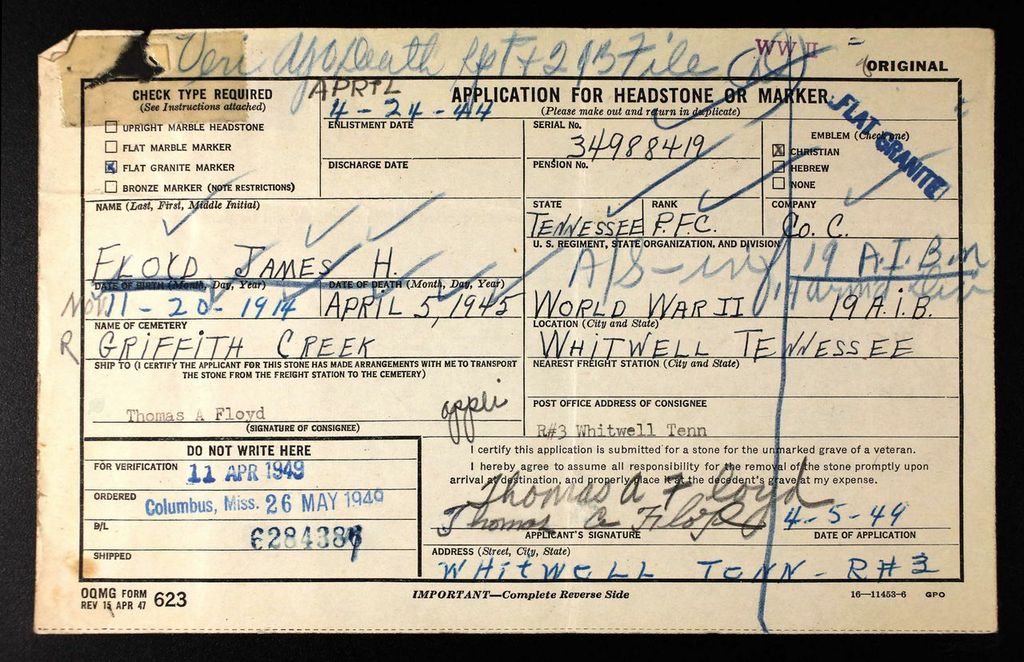 Veri Death Rpt + 201 File
WW II
ORIGINAL
CHECK TYPE REQUIRED
(See Instructions attached)
UPRIGHT MARBLE HEADSTONE
FLAT MARBLE MARKER
FLAT GRANITE MARKER
BRONZE MARKER (NOTE RESTRICTIONS)
APRIL
4-24-44
ENLISTMENT DATE
DISCHARGE DATE
APPLICATION FOR HEADSTONE OR MARKER
(Please make out and return in duplicate)
SERIAL No.
34988419
PENSION No.
EMBLEM (Check one)
X CHRISTIAN
HEBREW
NONE
FLAT GRANITE
NAME (Last, First, Middle Initial)
FLOYD JAMES H.
STATE
TENNESSEE
RANK
P.F.C.
COMPANY
Co. C.
U. S. REGIMENT, STATE ORGANIZATION, AND DIVISION
19 A.I.Bn
WORLD WAR II 19 A.I.B.
DATE OF BIRTH (Month, Day, Year)
Nov 11-20-1914
DATE OF DEATH (Month, Day, Year)
APRIL 5, 1945
NAME OF CEMETERY
GRIFFITH CREEK
LOCATION (City and State)
WHITWELL TENNESSEE
SHIP TO (I CERTIFY THE APPLICANT FOR THIS STONE HAS MADE ARRANGEMENTS WITH ME TO TRANSPORT
THE STONE FROM THE FREIGHT STATION TO THE CEMETERY)
NEAREST FREIGHT STATION (City and State)
Thomas A Floyd
appli
(SIGNATURE OF CONSIGNEE)
POST OFFICE ADDRESS OF CONSIGNEE
R#3 Whitwell Tenn
DO NOT WRITE HERE
FOR VERIFICATION
11 APR 1949
ORDERED
Columbus, Miss. 26 MAY 1949
B/L
SHIPPED
I certify this application is submitted for a stone for the unmarked grave of a veteran.
I hereby agree to assume all responsibility for the removal of the stone promptly upon
arrival at destination, and properly place it at the decedent's grave at my expense.
Thomas A Floyd
Thomas A Floyd 4-5-49
APPLICANT'S SIGNATURE
DATE OF APPLICATION
ADDRESS (Street, City, State)
WHITWELL TENN- R#3
OQMG FORM
REV 15 APR 47 623
IMPORTANT—Complete Reverse Side
16—11453-6 GPO